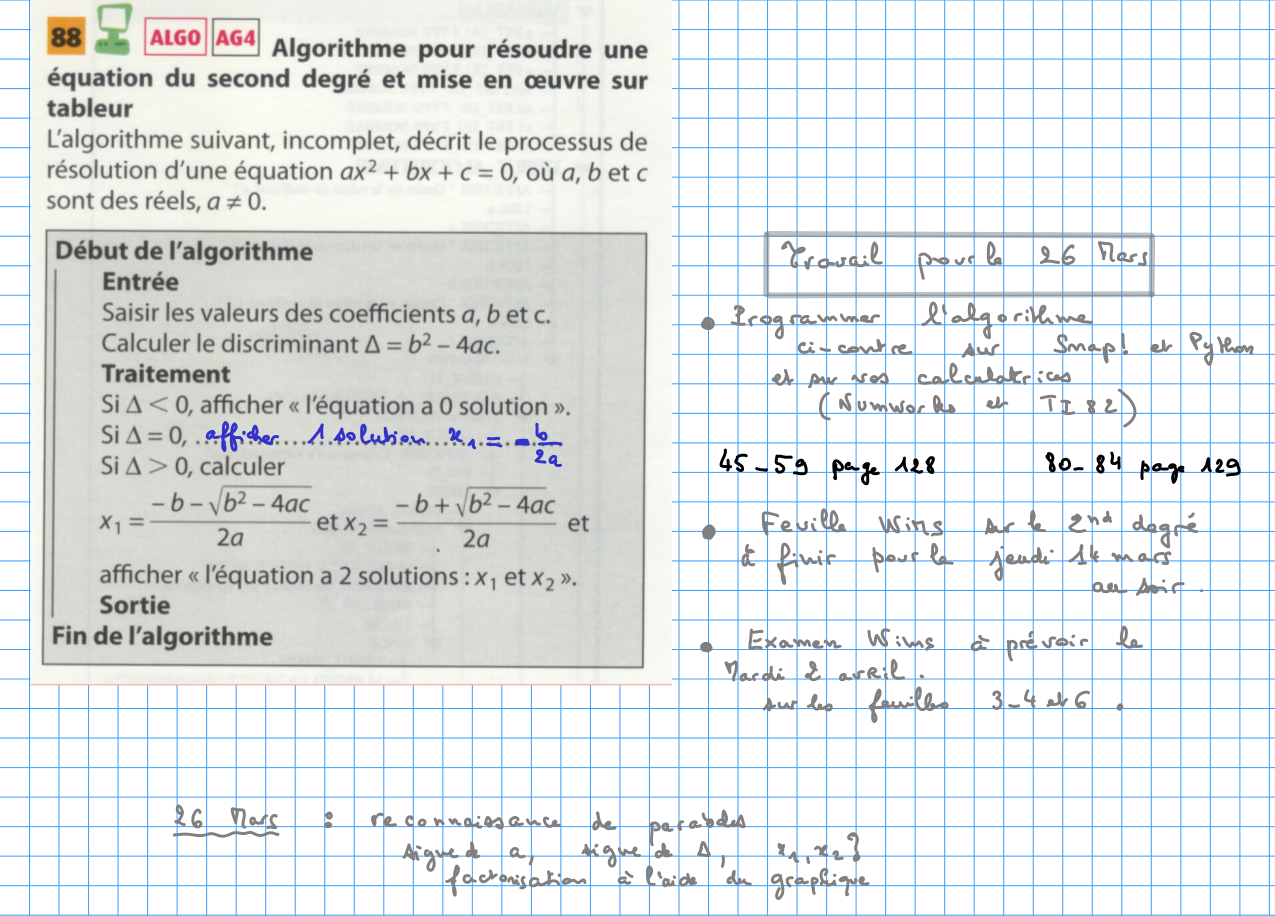 88 ALGO AG4 Algorithme pour résoudre une
équation du second degré et mise en œuvre sur
tableur
L'algorithme suivant, incomplet, décrit le processus de
résolution d'une équation ax² + bx + c = 0, où a, b et c
sont des réels, a ≠ 0.
Début de l'algorithme
Entrée
Saisir les valeurs des coefficients a, b et c.
Calculer le discriminant Δ = b² – 4ac.
Traitement
Si Δ < 0, afficher « l'équation a 0 solution ».
Si Δ = 0, afficher 1 solution x₁ = -b/2a
Si Δ > 0, calculer
x₁ = (– b – √(b² – 4ac))/2a et x₂ = (– b + √(b² – 4ac))/2a et
afficher « l'équation a 2 solutions : x₁ et x₂ ».
Sortie
Fin de l'algorithme
Travail pour le 26 Mars
• Programmer l'algorithme
ci-contre sur Snap! et Python
et sur vos calculatrices
(Numworks et TI 82)
45-59 page 128 80-84 page 129
• Feuille Wims sur le 2nd degré
à finir pour le jeudi 14 mars
au soir.
• Examen Wims à prévoir le
Mardi 2 avril.
sur les feuilles 3-4 et 6.
26 Mars : reconnaissance de paraboles
signe de a, signe de Δ, x₁, x₂ }
factorisation à l'aide du graphique